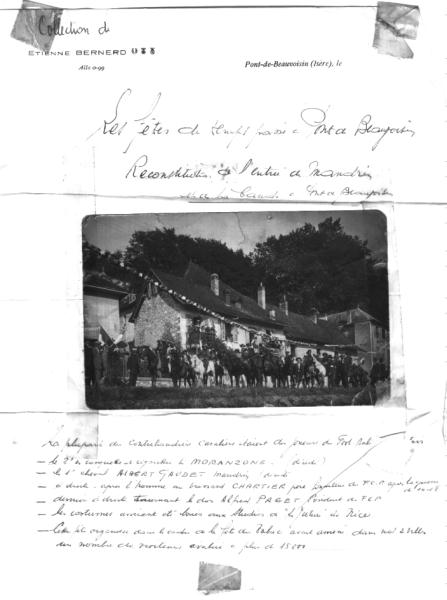 Collection de
ETIENNE BERNERD
Allô 0-99
Pont-de-Beauvoisin (Isère), le
Les fêtes du temps passé à Pont de Beauvoisin
Reconstitution de l'entrée de Mandrin
à Pont de Beauvoisin
La plupart des Contrebandiers Cavaliers étaient des joueurs de Foot Ball
le 3e à MORANZONE
le cheval ALBERT GAUDET Mandrin
à droite après l'homme au CHARTIER F.C.P. après la guerre
dernier à droite tournant le dos Alfred PAGET Président du FCP
les costumes avaient été loués aux Studios de la de Nice
Cette fête organisée dans le cadre de la fête du Tabac avait amené dans nos 2 villes
un nombre de visiteurs évalué à plus de 15000